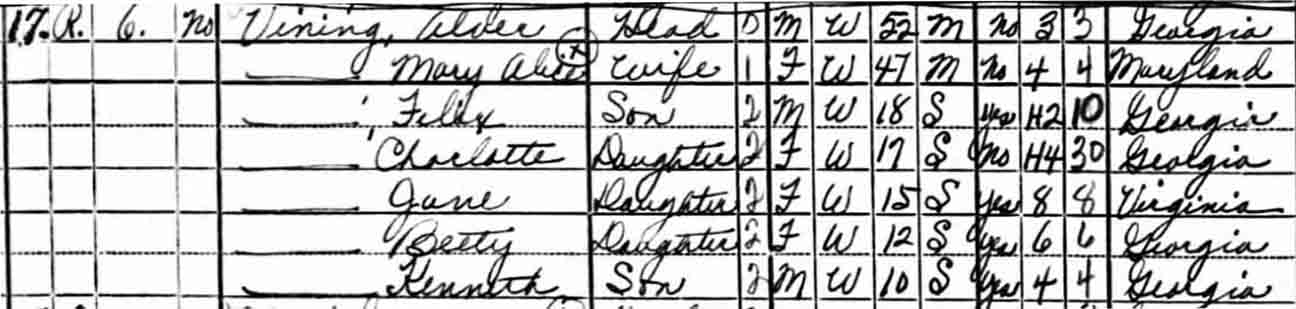 17. R. 6. No Vining, Alver Head 0 M W 52 M No 3 3 Georgia
Mary Alice Wife 1 F W 47 M No 4 4 Maryland
, Felix Son 2 M W 18 S yes H2 10 Georgia
Charlotte Daughter 2 F W 17 S No H4 30 Georgia
June Daughter 2 F W 15 S yes 8 8 Virginia
Betty Daughter 2 F W 12 S yes 6 6 Georgia
Kenneth Son 2 M W 10 S yes 4 4 Georgia